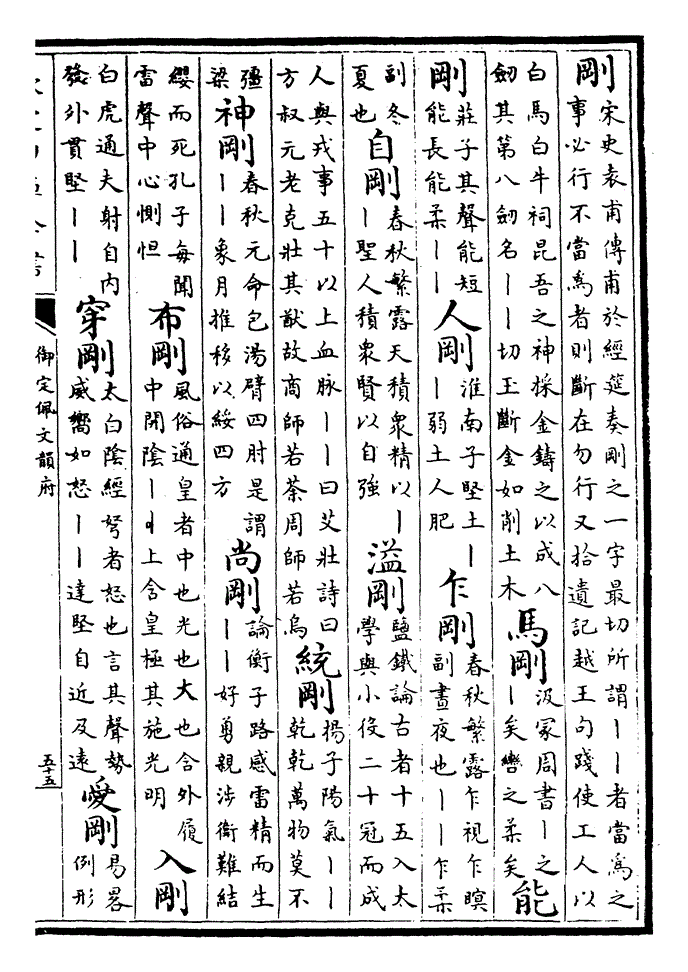 剛 宋史袁甫傳甫於經筵奏剛之一字最切所謂丨丨者當爲之
事必行不當爲者則斷在勿行又拾遺記越王句踐使工人以
白馬白牛祠昆吾之神採金鑄之以成八
劒其第八劒名丨丨切玉斷金如削土木
馬剛 汲冢周書丨之
丨矣轡之柔矣
能
剛 莊子其聲能短
能長能柔丨丨
人剛 淮南子堅土丨
丨弱土人肥
乍剛 春秋繁露乍視乍瞑
副晝夜也丨丨乍柔
副冬
夏也
自剛 春秋繁露天積衆精以丨
丨聖人積衆賢以自強
溢剛 鹽鐵論古者十五入太
學與小役二十冠而成
人與戎事五十以上血脉丨丨曰艾壯詩曰
方叔元老克壯其猷故商師若荼周師若烏
統剛 揚子陽氣丨丨
乾乾萬物莫不
彊
梁
神剛 春秋元命包湯臂四肘是謂
丨丨象月推移以綏四方
尚剛 論衡子路感雷精而生
丨丨好勇親涉衞難結
纓而死孔子每聞
雷聲中心惻怛
布剛 風俗通皇者中也光也大也含外履
中開陰丨上含皇極其施光明
入剛
白虎通夫射自内
發外貫堅丨丨
穿剛 太白陰經弩者怒也言其聲勢
威嚮如怒丨丨達堅自近及遠
愛剛 易畧
例形
御定佩文韻府
五十五